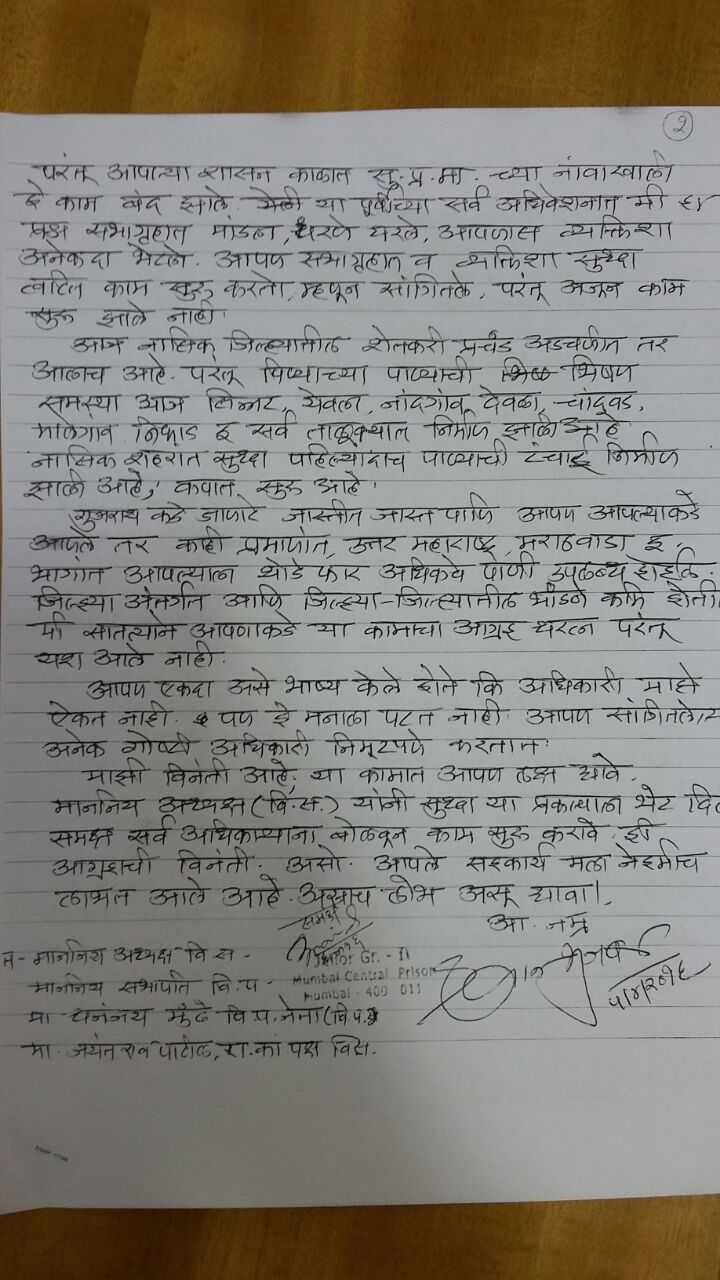 २
परंतू आपल्या शासन काळात सु.प्र.मा. च्या नांवाखाली
हे काम बंद झाले. गेली या पूर्वीच्या सर्व अधिवेशनात मी हा
प्रश्न सभागृहात मांडला, धरणे धरले, आपणास व्यक्तिशा
अनेकदा भेटलो. आपण सभागृहात व व्यक्तिशा सुध्दा
त्वरित काम सुरू करतो, म्हणून सांगितले, परंतू अजून काम
सुरू झाले नाही.
आज नासिक जिल्ह्यातील शेतकरी प्रचंड अडचणीत तर
आलाच आहे. परंतू पिण्याच्या पाण्याची भिषण
समस्या आज सिन्नर, येवला, नांदगांव, देवळा, चांदवड,
मालेगांव निफाड इ सर्व तालूक्यात निर्माण झाली आहे
नासिक शहरात सुध्दा पहिल्यांदाच पाण्याची टंचाई निर्माण
झाली आहे, कपात सुरू आहे.
गुजराथ कडे जाणारे जास्तीत जास्त पाणि आपण आपल्याकडे
आणले तर काही प्रमाणात, उत्तर महाराष्ट्र, मराठवाडा इ.
भागांत आपल्याला थोडे फार अधिकचे पाणी उपलब्ध होईल.
जिल्ह्या अंतर्गत आणि जिल्ह्या-जिल्ह्यातील भांडणे कमि होती
मी सातत्याने आपणाकडे या कामाचा आग्रह धरला परंतू
यश आले नाही.
आपण एकदा असे भाष्य केले होते कि अधिकारी माझे
ऐकत नाही. पण हे मनाला पटत नाही. आपण सांगितले
अनेक गोष्टी अधिकारी निमूटपणे करतात.
माझी विनंती आहे, या कामात आपण लक्ष द्यावे.
माननिय अध्यक्ष (वि.स.) यांनी सुध्दा या प्रकल्पाला भेट
समक्ष सर्व अधिकाऱ्यांना बोलवून काम सुरू करावे ही
आग्रहाची विनंती. असो. आपले सहकार्य मला नेहमीच
लाभत आले आहे. असाच लोभ असू द्यावा।,
समक्ष
आ. नम्र
- माननिय अध्यक्ष वि स -
Gr. - II
माननिय सभापति वि.प -
Mumbai Central Prison
Mumbai - 400 011
मा धनंजय मुंडे वि.प. नेता (वि.प.)
मा. जयंतराव पाटील, रा.कां पक्ष विस.